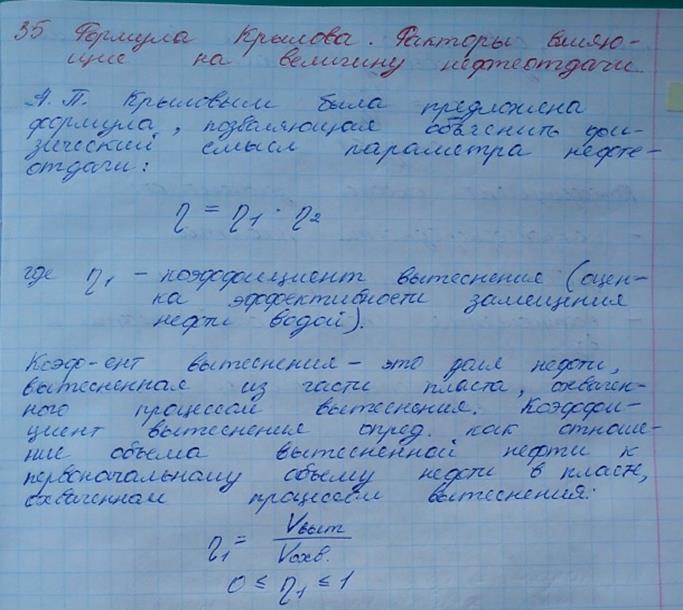 35 Формула Крылова. Факторы влияю-
щие на величину нефтеотдачи
А. П. Крыловым была предложена
формула, позваляющая объяснить фи-
зический смысл параметра нефте-
отдачи:
η = η1 · η2
где η1 – коэффициент вытеснения (оцен-
ка эффективности замещения
нефти водой).
Коэф-ент вытеснения – это доля нефти,
вытесненная из части пласта, охвачен-
ного процессом вытеснения. Коэффи-
циент вытеснения опред. как отноше-
ние объема вытесненной нефти к
первоначальному объему нефти в пласте,
охваченном процессом вытеснения:
η1 = Vвыт / Vохв.
0 ≤ η1 ≤ 1